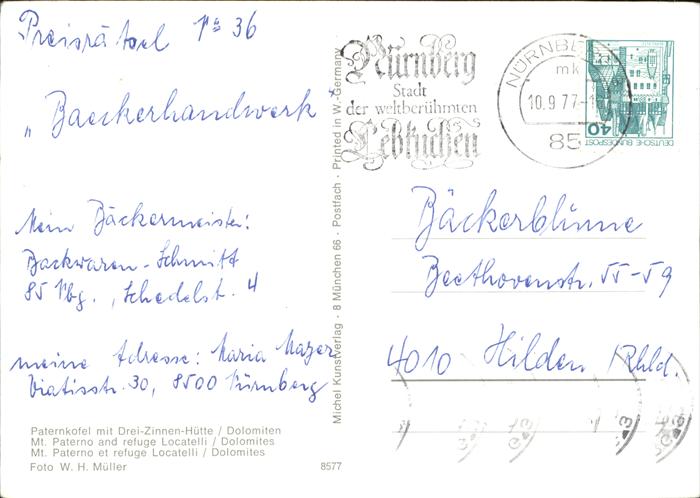 Preisrätsel Nº 36
"Baeckerhandwerk"
Mein Bäckermeister:
Backwaren-Schmitt
85 Nbg., Schedelstr. 4
meine Adresse: Maria Mayer
Viatisstr. 30, 8500 Nürnberg
Paternkofel mit Drei-Zinnen-Hütte / Dolomiten
Mt. Paterno and refuge Locatelli / Dolomites
Mt. Paterno et refuge Locatelli / Dolomites
Foto W. H. Müller
8577
Michel Kunstverlag · 8 München 66 · Postfach · Printed in W.-Germany
Nürnberg
Stadt
der weltberühmten
Lebkuchen
mk
10.9.77
85
40
DEUTSCHE BUNDESPOST
Bäckerblume
Beethovenstr. 55-59
4010 Hilden Rhld.